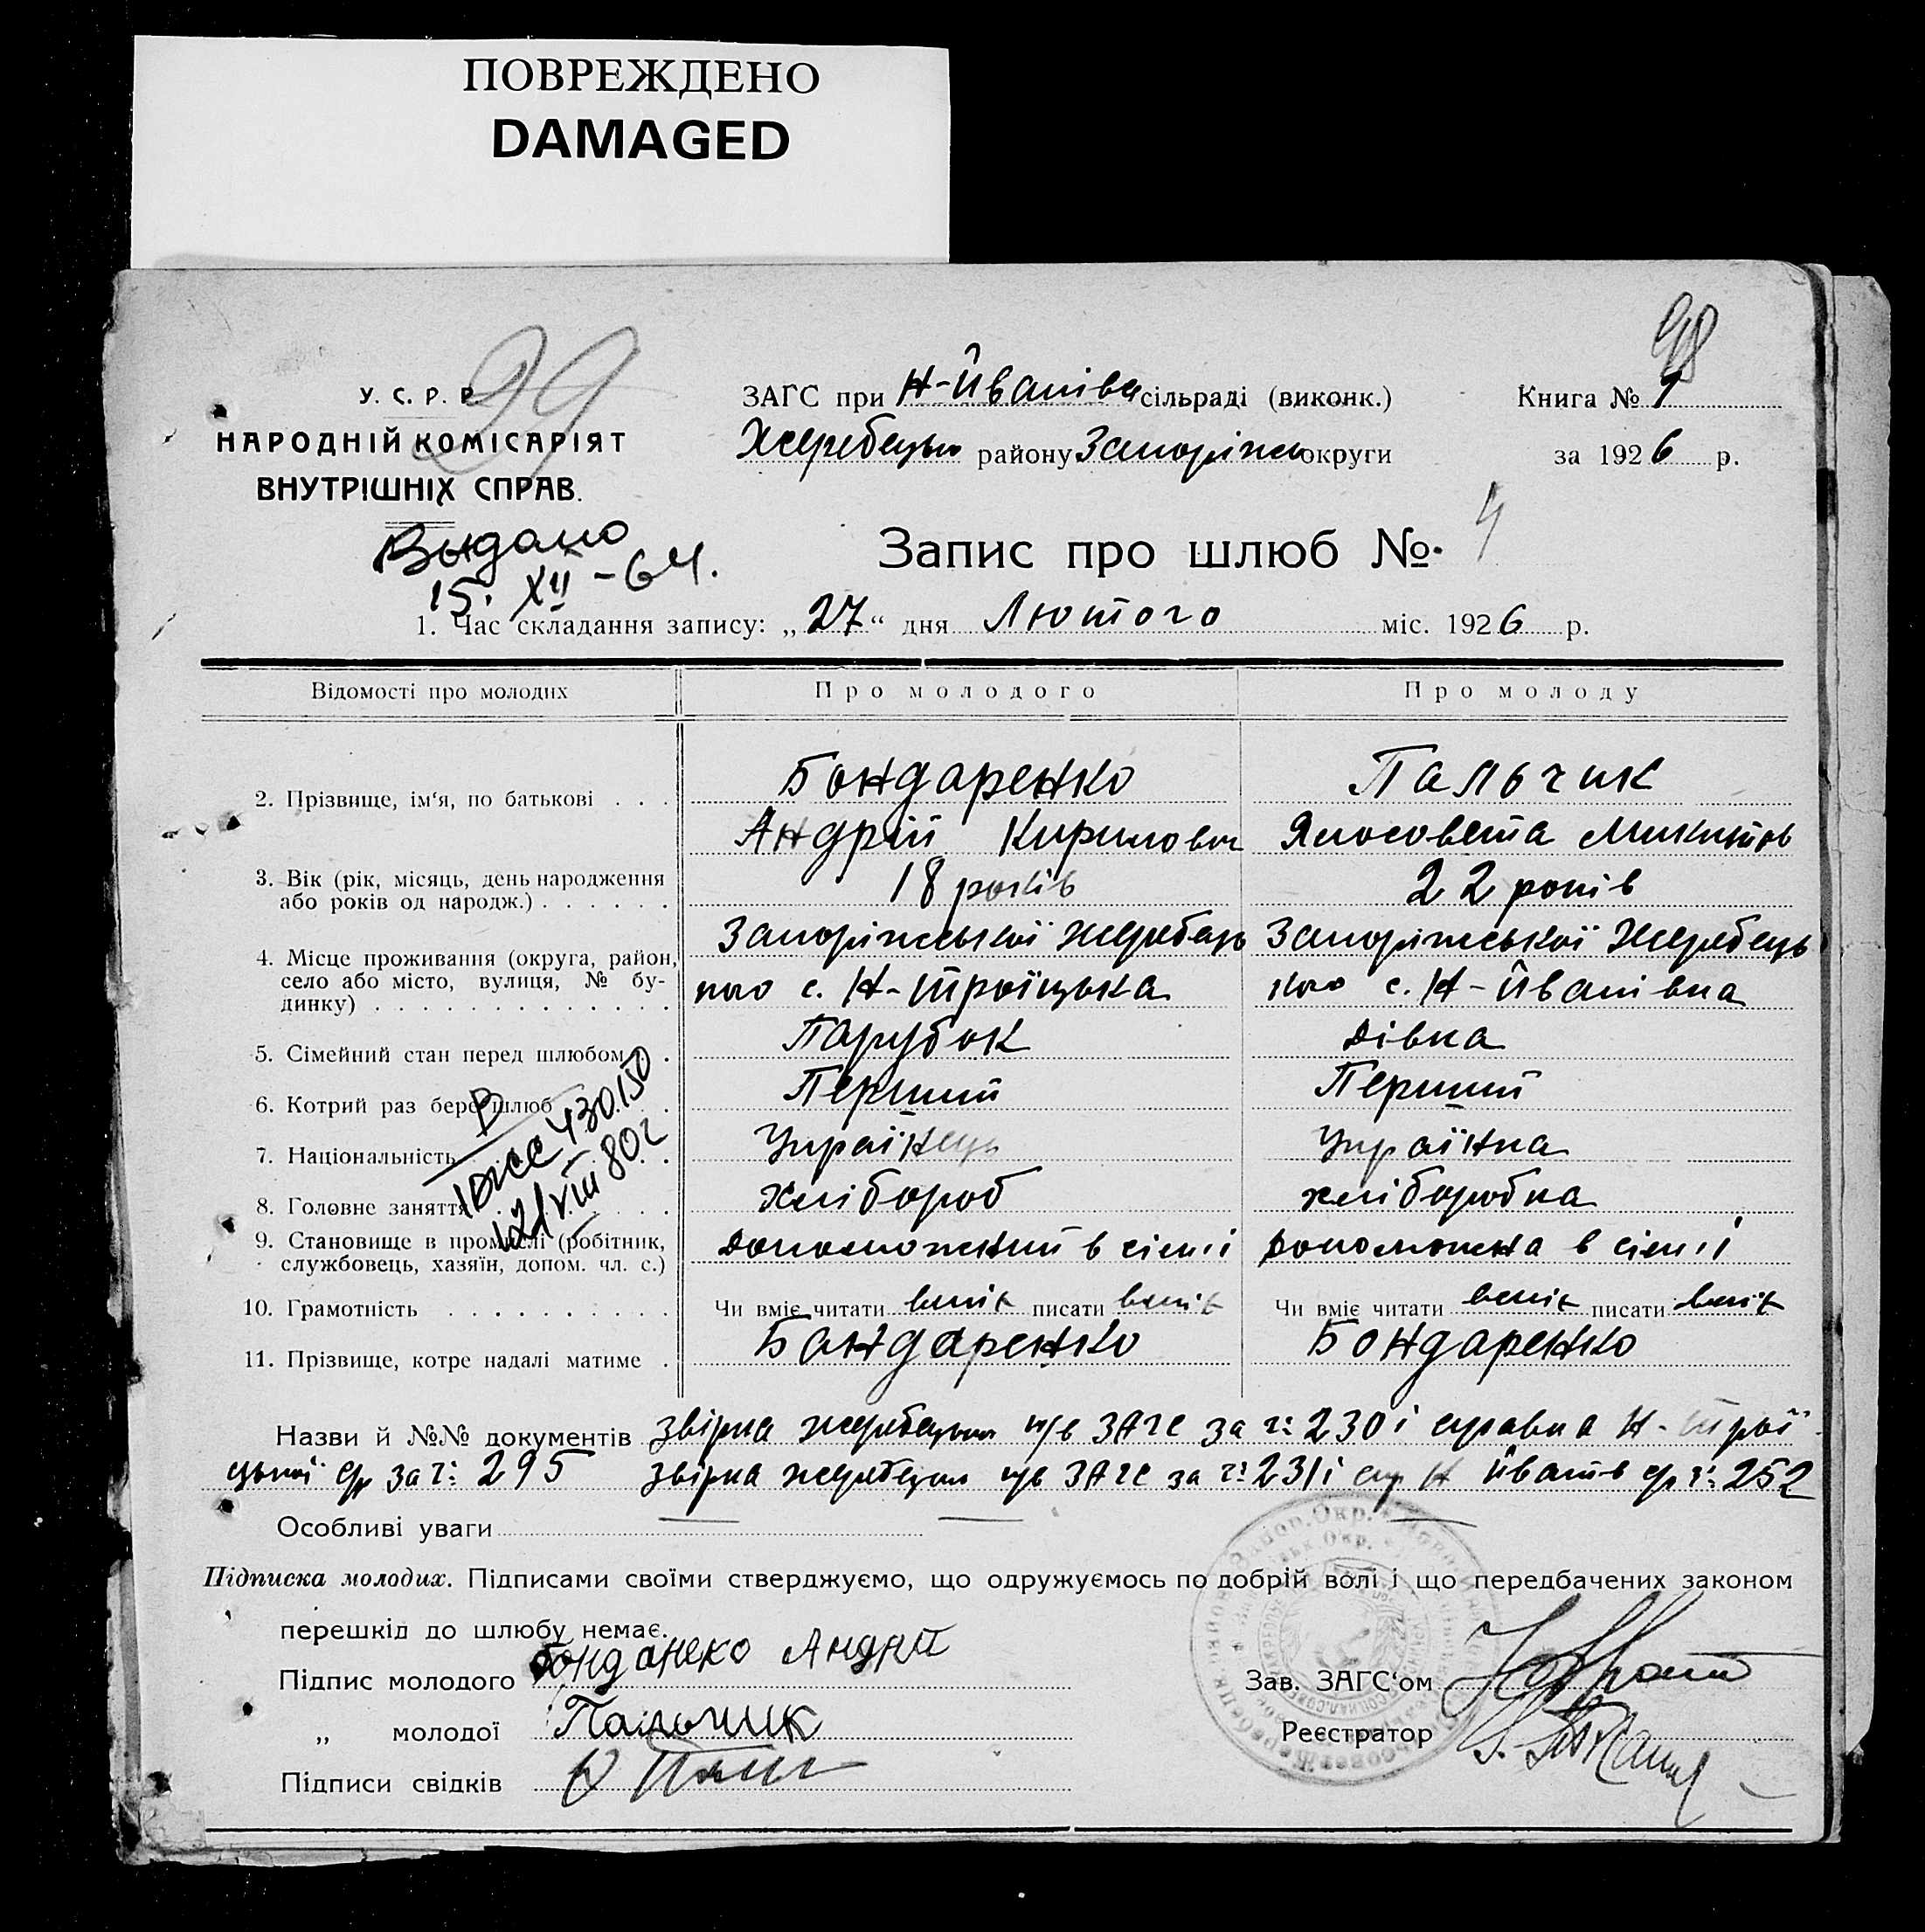 ПОВРЕЖДЕНО
DAMAGED
29
98
У. С. Р. Р.
НАРОДНІЙ КОМІСАРІЯТ
ВНУТРІШНІХ СПРАВ.
ЗАГС при Н-Йванівс сільраді (виконк.)
Жеребецьк району Запоріжс округи
Книга № 1
за 1926 р.
Выдано
15. XII - 64.
Запис про шлюб №. 4
1. Час складання запису: „27“ дня Лютого міс. 1926 р.
Відомості про молодих Про молодого Про молоду
2. Прізвище, ім‘я, по батькові . . . Бондаренко Пальчик
Андрій Кирилович Ялосовета Микитов
3. Вік (рік, місяць, день народження
або років од народж.) . . . . . . 18 років 22 років
4. Місце проживання (округа, район, Запоріжської Жеребець Запоріжської Жеребець
село або місто, вулиця, № бу- кого с. Н-Троїцька кого с. Н-Йванівка
динку) . . . . . . . . . . . . .
5. Сімейний стан перед шлюбом . . Парубок Дівка
6. Котрий раз бере шлюб Перший Перший
7. Національність Українець Українка
8. Головне заняття хлібороб хліборобка
9. Становище в промислі (робітник, допоможний в сім'ї допоможна в сім'ї
службовець, хазяїн, допом. чл. с.)
430150
21/VIII 80г
10. Грамотність . . . . . . . . . . Чи вміє читати вміє писати вміє Чи вміє читати вміє писати вміє
11. Прізвище, котре надалі матиме . Бондаренко Бондаренко
Назви й №№ документів звірка жеребецьк ЗАГС за ч: 230 і справка Н-Трої
цької ср за ч: 295 звірка жеребецьк ЗАГС за ч: 231 і Н Йванів ср ч: 252
Особливі уваги
Підписка молодих. Підписами своїми стверджуємо, що одружуємось по добрій волі і що передбачених законом
перешкід до шлюбу немає.
Підпис молодого Бонданеко Андрій
„ молодої Пальчик
Підписи свідків
Зав. ЗАГС‘ом
Реєстратор